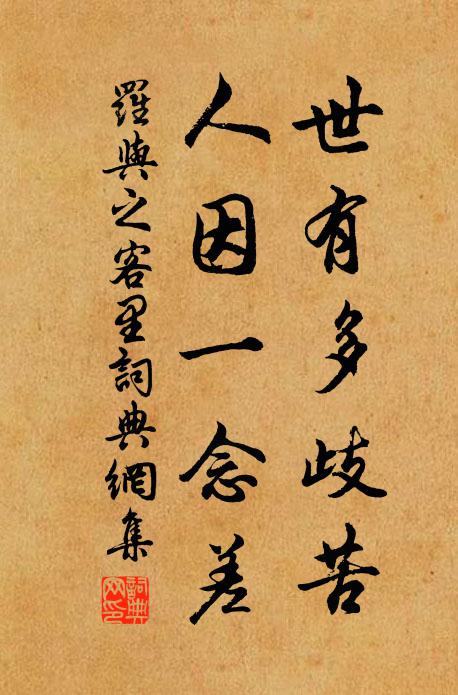 世有多歧苦
人因一念差
羅與之客里詞典網集
詞典网印